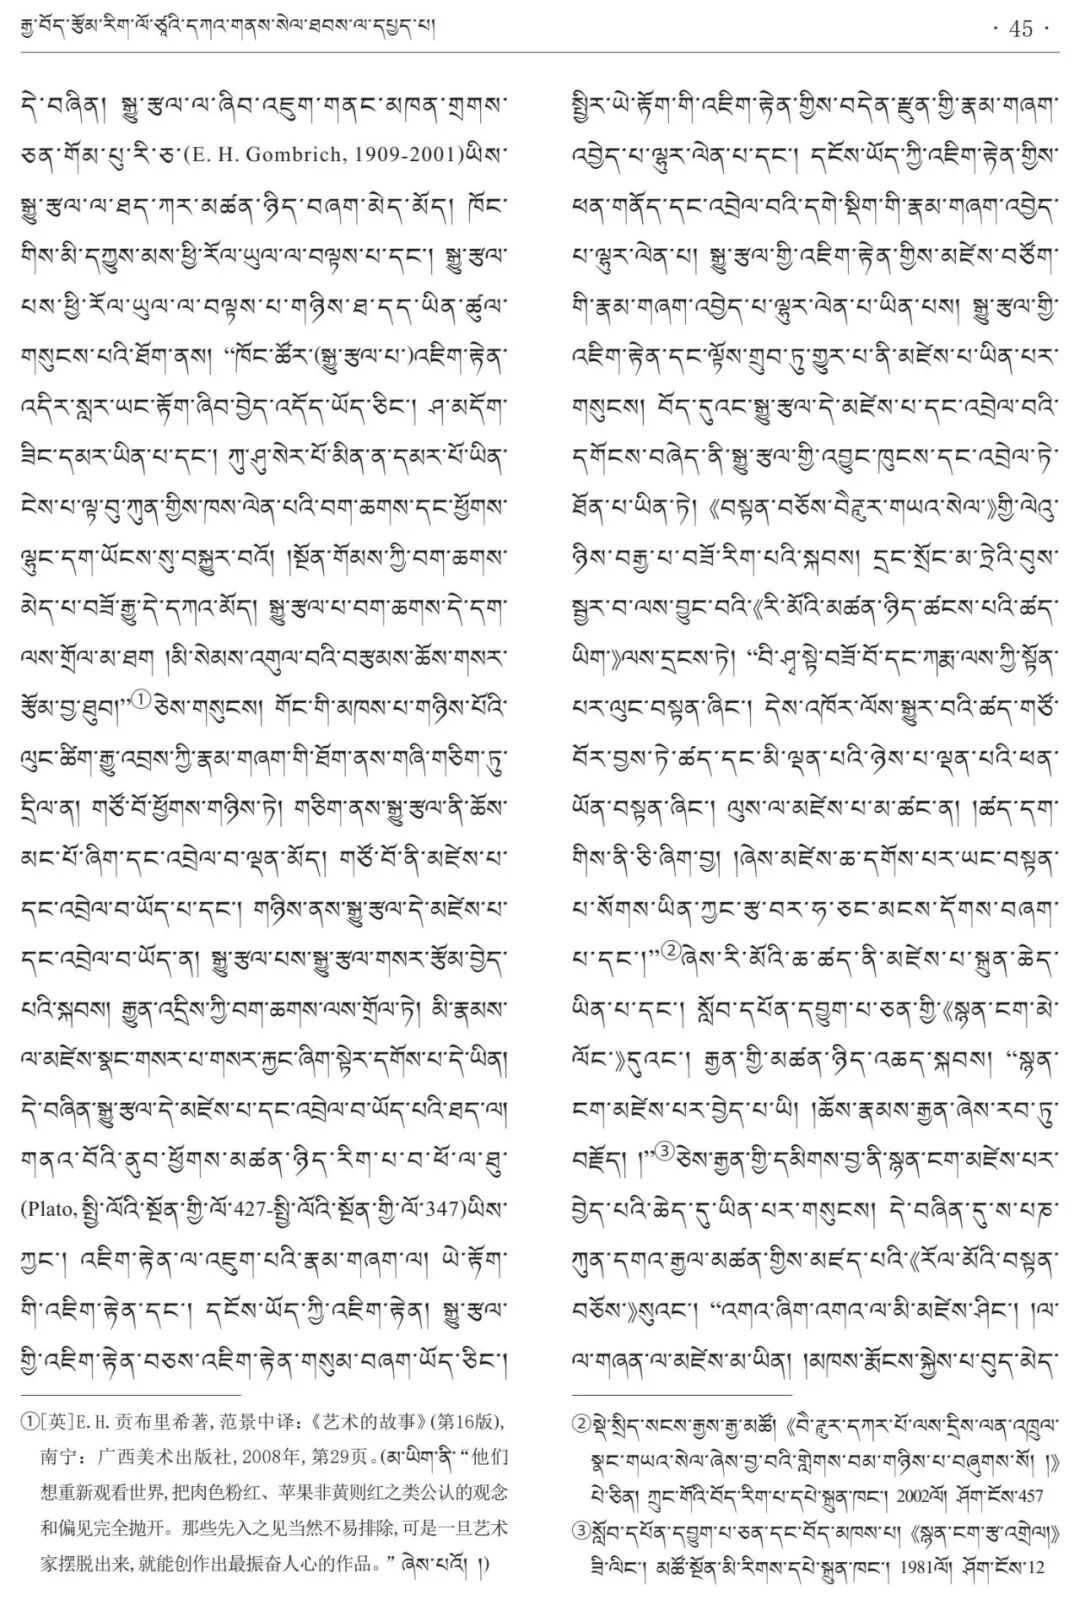 རྒྱ་བོད་རྩོམ་རིག་ལོ་ཙཱའི་དཀའ་གནས་སེལ་ཐབས་ལ་དཔྱད་པ།
· 45 ·
དེ་བཞིན། སྒྱུ་རྩལ་ལ་ཞིབ་འཇུག་གནང་མཁན་གྲགས་
ཅན་གོམ་པུ་རི་ཅ་(E. H. Gombrich, 1909-2001)ཡིས་
སྒྱུ་རྩལ་ལ་ཐད་ཀར་མཚན་ཉིད་བཞག་མེད་མོད། ཁོང་
གིས་མི་དཀྱུས་མས་ཕྱི་རོལ་ཡུལ་ལ་བལྟས་པ་དང་། སྒྱུ་རྩལ་
པས་ཕྱི་རོལ་ཡུལ་ལ་བལྟས་པ་གཉིས་ཐ་དད་ཡིན་ཚུལ་
གསུངས་པའི་ཐོག་ནས། “ཁོང་ཚོར་(སྒྱུ་རྩལ་པ་)འཇིག་རྟེན་
འདིར་སླར་ཡང་རྟོག་ཞིབ་བྱེད་འདོད་ཡོད་ཅིང་། ཤ་མདོག་
ཟིང་དམར་ཡིན་པ་དང་། ཀུ་ཤུ་སེར་པོ་མིན་ན་དམར་པོ་ཡིན་
ངེས་པ་ལྟ་བུ་ཀུན་གྱིས་ཁས་ལེན་པའི་བག་ཆགས་དང་ཕྱོགས་
ལྷུང་དག་ཡོངས་སུ་བསྐྱུར་བའོ། །སྔོན་གོམས་ཀྱི་བག་ཆགས་
མེད་པ་བཟོ་རྒྱུ་དེ་དཀའ་མོད། སྒྱུ་རྩལ་པ་བག་ཆགས་དེ་དག་
ལས་གྲོལ་མ་ཐག །མི་སེམས་འགུལ་བའི་བརྩམས་ཆོས་གསར་
རྩོམ་བྱ་ཐུབ།”①ཅེས་གསུངས། གོང་གི་མཁས་པ་གཉིས་པོའི་
ལུང་ཚིག་རྒྱུ་འབྲས་ཀྱི་རྣམ་གཞག་གི་ཐོག་ནས་གཞི་གཅིག་ཏུ་
དྲིལ་ན། གཙོ་བོ་ཕྱོགས་གཉིས་ཏེ། གཅིག་ནས་སྒྱུ་རྩལ་ནི་ཆོས་
མང་པོ་ཞིག་དང་འབྲེལ་བ་ལྡན་མོད། གཙོ་བོ་ནི་མཛེས་པ་
དང་འབྲེལ་བ་ཡོད་པ་དང་། གཉིས་ནས་སྒྱུ་རྩལ་དེ་མཛེས་པ་
དང་འབྲེལ་བ་ཡོད་ན། སྒྱུ་རྩལ་པས་སྒྱུ་རྩལ་གསར་རྩོམ་བྱེད་
པའི་སྐབས། རྒྱུན་འདྲིས་ཀྱི་བག་ཆགས་ལས་གྲོལ་ཏེ། མི་རྣམས་
ལ་མཛེས་སྣང་གསར་པ་གསར་རྐྱང་ཞིག་སྟེར་དགོས་པ་དེ་ཡིན།
དེ་བཞིན་སྒྱུ་རྩལ་དེ་མཛེས་པ་དང་འབྲེལ་བ་ཡོད་པའི་ཐད་ལ།
གནའ་བོའི་ནུབ་ཕྱོགས་མཚན་ཉིད་རིག་པ་བ་ཕོ་ལ་ཐུ་
(Plato,སྤྱི་ལོའི་སྔོན་གྱི་ལོ་427-སྤྱི་ལོའི་སྔོན་གྱི་ལོ་347)ཡིས་
ཀྱང་། འཇིག་རྟེན་ལ་འཇུག་པའི་རྣམ་གཞག་ལ། ཡེ་རྟོག་
གི་འཇིག་རྟེན་དང་། དངོས་ཡོད་ཀྱི་འཇིག་རྟེན། སྒྱུ་རྩལ་
གྱི་འཇིག་རྟེན་བཅས་འཇིག་རྟེན་གསུམ་བཞག་ཡོད་ཅིང་།
①[英]E. H. 贡布里希著,范景中译:《艺术的故事》(第16版),
南宁:广西美术出版社,2008年,第29页。(མ་ཡིག་ནི་“他们
想重新观看世界,把肉色粉红、苹果非黄则红之类公认的观念
和偏见完全抛开。那些先入之见当然不易排除,可是一旦艺术
家摆脱出来,就能创作出最振奋人心的作品。” ཞེས་པའོ། །)
སྤྱིར་ཡེ་རྟོག་གི་འཇིག་རྟེན་གྱིས་བདེན་རྫུན་གྱི་རྣམ་གཞག་
འབྱེད་པ་ལྷུར་ལེན་པ་དང་། དངོས་ཡོད་ཀྱི་འཇིག་རྟེན་གྱིས་
ཕན་གནོད་དང་འབྲེལ་བའི་དགེ་སྡིག་གི་རྣམ་གཞག་འབྱེད་
པ་ལྷུར་ལེན་པ། སྒྱུ་རྩལ་གྱི་འཇིག་རྟེན་གྱིས་མཛེས་བཙོག་
གི་རྣམ་གཞག་འབྱེད་པ་ལྷུར་ལེན་པ་ཡིན་པས། སྒྱུ་རྩལ་གྱི་
འཇིག་རྟེན་དང་ལྟོས་གྲུབ་ཏུ་གྱུར་པ་ནི་མཛེས་པ་ཡིན་པར་
གསུངས། བོད་དུའང་སྒྱུ་རྩལ་དེ་མཛེས་པ་དང་འབྲེལ་བའི་
དགོངས་བཞེད་ནི་སྒྱུ་རྩལ་གྱི་འབྱུང་ཁུངས་དང་འབྲེལ་ཏེ་
ཐོན་པ་ཡིན་ཏེ། 《བསྟན་བཅོས་བཻཌཱུར་གཡའ་སེལ་》གྱི་ལེའུ་
ཉིས་བརྒྱ་པ་བཟོ་རིག་པའི་སྐབས། དྲང་སྲོང་མ་ཏྲེའི་བུས་
སྦྱར་བ་ལས་བྱུང་བའི་《རི་མོའི་མཚན་ཉིད་ཚངས་པའི་ཚད་
ཡིག་》ལས་དྲངས་ཏེ། “བི་ཤྭ་སྟེ་བཟོ་བོ་དང་ཀརྨ་ལས་ཀྱི་སྟོན་
པར་ལུང་བསྟན་ཞིང་། དེས་འཁོར་ལོས་སྒྱུར་བའི་ཚད་གཙོ་
བོར་བྱས་ཏེ་ཚད་དང་མི་ལྡན་པའི་ཉེས་པ་ལྡན་པའི་ཕན་
ཡོན་བསྟན་ཞིང་། ལུས་ལ་མཛེས་པ་མ་ཚང་ན། །ཚད་དག་
གིས་ནི་ཅི་ཞིག་བྱ། །ཞེས་མཛེས་ཆ་དགོས་པར་ཡང་བསྟན་
པ་སོགས་ཡིན་ཀྱང་རྩ་བར་ཧ་ཅང་མངས་དོགས་བཞག་
པ་དང་།”②ཞེས་རི་མོའི་ཆ་ཚད་ནི་མཛེས་པ་སྐྲུན་ཆེད་
ཡིན་པ་དང་། སློབ་དཔོན་དབྱུག་པ་ཅན་གྱི་《སྙན་ངག་མེ་
ལོང་》དུའང་། རྒྱན་གྱི་མཚན་ཉིད་འཆད་སྐབས། “སྙན་
ངག་མཛེས་པར་བྱེད་པ་ཡི། །ཆོས་རྣམས་རྒྱན་ཞེས་རབ་ཏུ་
བརྗོད། །”③ཅེས་རྒྱན་གྱི་དམིགས་བྱ་ནི་སྙན་ངག་མཛེས་པར་
བྱེད་པའི་ཆེད་དུ་ཡིན་པར་གསུངས། དེ་བཞིན་དུ་ས་པཎ་
ཀུན་དགའ་རྒྱལ་མཚན་གྱིས་མཛད་པའི་《རོལ་མོའི་བསྟན་
བཅོས་》སུའང་། “འགའ་ཞིག་འགའ་ལ་མི་མཛེས་ཤིང་། །ལ་
ལ་གཞན་ལ་མཛེས་མ་ཡིན། །མཁས་རྨོངས་སྐྱེས་པ་བུད་མེད་
②སྡེ་སྲིད་སངས་རྒྱས་རྒྱ་མཚོ། 《བཻ་ཌཱུར་དཀར་པོ་ལས་དྲིས་ལན་འཁྲུལ་
སྣང་གཡའ་སེལ་ཞེས་བྱ་བའི་གླེགས་བམ་གཉིས་པ་བཞུགས་སོ། །》
པེ་ཅིན། ཀྲུང་གོའི་བོད་རིག་པ་དཔེ་སྐྲུན་ཁང་། 2002ལོ། ཤོག་ངོས་457
③སློབ་དཔོན་དབྱུག་པ་ཅན་དང་བོད་མཁས་པ། 《སྙན་ངག་རྩ་འགྲེལ།》
ཟི་ལིང་། མཚོ་སྔོན་མི་རིགས་དཔེ་སྐྲུན་ཁང་། 1981ལོ། ཤོག་ངོས་12